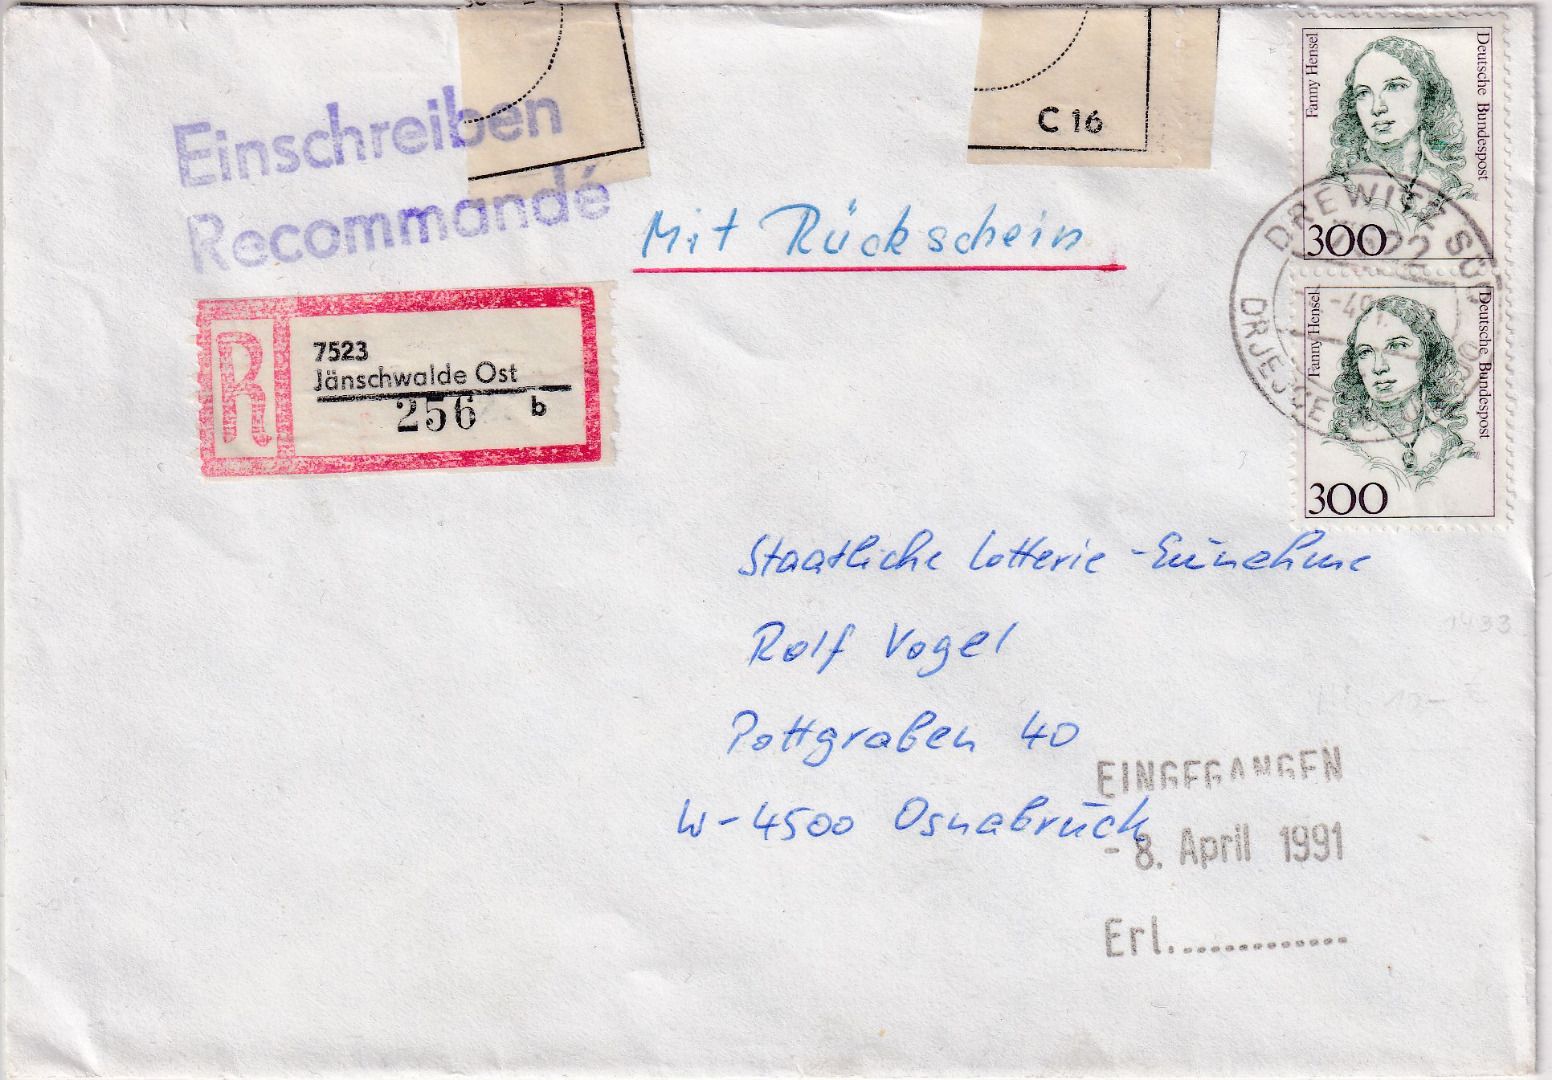 C 16
Einschreiben
Recommandé
Mit Rückschein
R
7523
Jänschwalde Ost
256 b
Fanny Hensel
Deutsche Bundespost
300
Fanny Hensel
Deutsche Bundespost
300
DREWITZ SÜD
DRJEJCE
Staatliche Lotterie-Einnahme
Rolf Vogel
Pottgraben 40
W-4500 Osnabrück
EINGEGANGEN
- 8. April 1991
Erl..............
1433